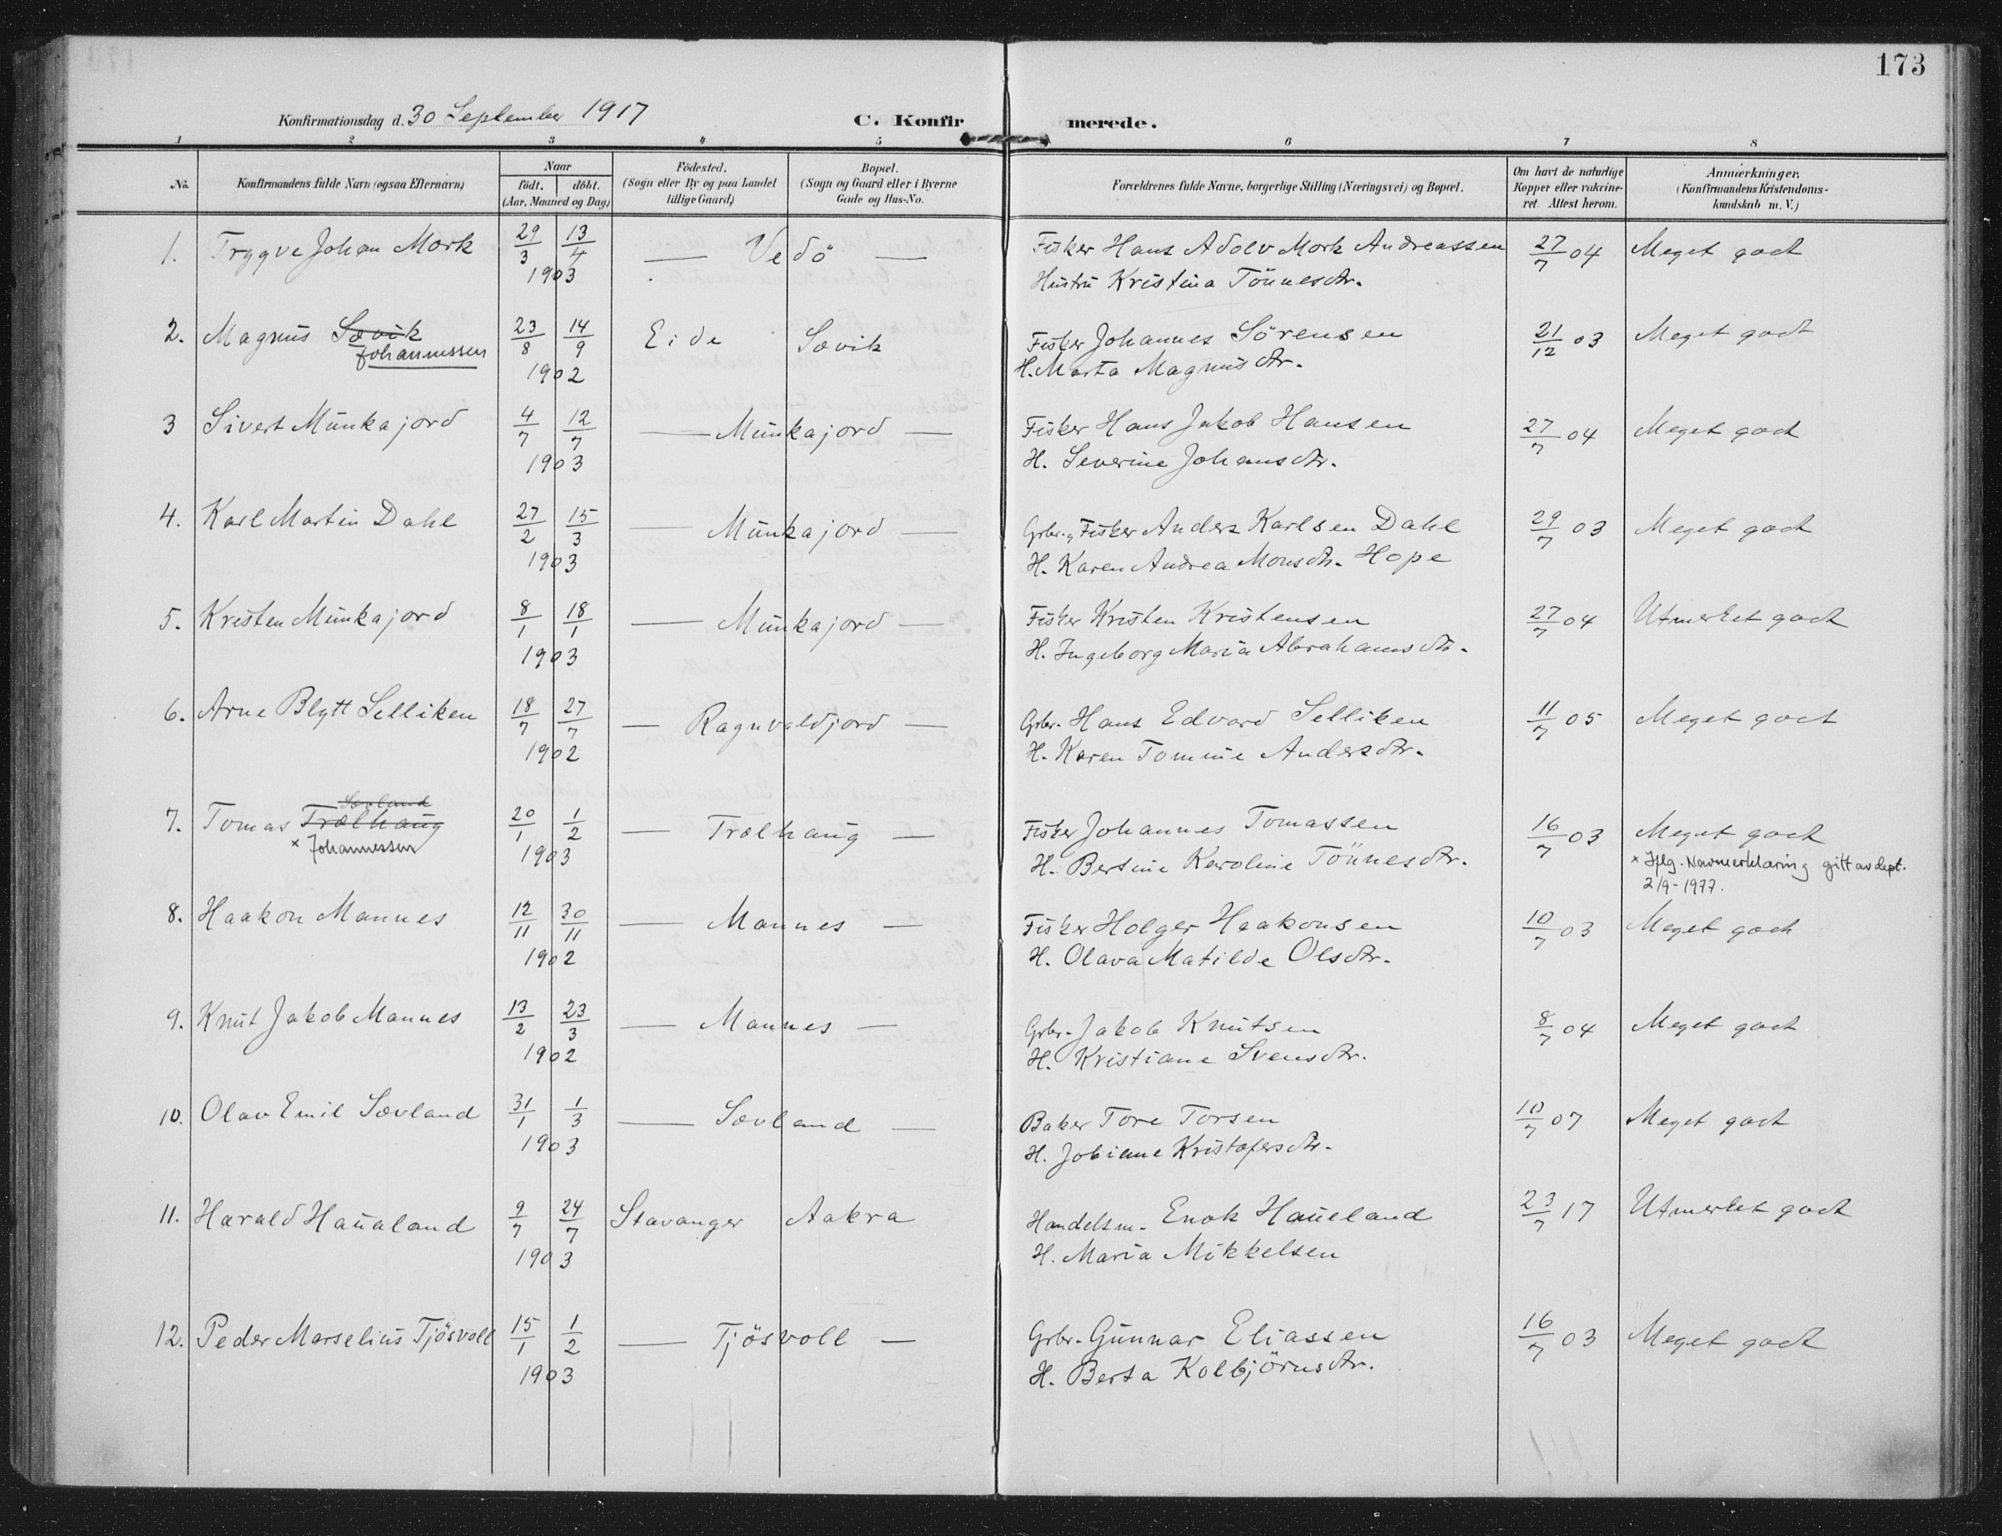 173
Konfirmationsdag d. 30 September 1917 C. Konfirmerede.
1 2 3 4 5 6 7 8
No. Konfirmandens fulde Navn (ogsaa Efternavn) Naar født. døbt. (Aar, Maaned og Dag) Fødested. (Sogn eller By og paa Landet tillige Gaard) Bopæl. (Sogn og Gaard eller i Byerne Gade og Hus-No. Forældrenes fulde Navne, borgerlige Stilling (Næringsvei) og Bopæl. Om havt de naturlige Kopper eller vakcineret. Attest herom. Anmærkninger. (Konfirmandens Kristendomskundskab m. V.)
1. Trygve Johan Mork 29/3 13/4 — Vedö — Fisker Hans Adolv Mork Andreassen 27/7 04 Meget godt
1903 Hustru Kristina Tönnesdtr.
2. Magnus Sævik 23/8 14/9 Eide Sævik Fisker Johannes Sörensen 21/12 03 Meget godt
Johannessen 1902 H. Marta Magnusdtr.
3 Sivert Munkajord 4/7 12/7 — Munkajord — Fisker Hans Jakob Hansen 27/7 04 Meget godt
1903 H. Severine Johansdtr.
4. Karl Martin Dahl 27/2 15/3 — Munkajord — Grbr. og Fisker Anders Karlsen Dahl 29/7 03 Meget godt
1903 H. Karen Andrea Monsdtr. Hope
5. Kristen Munkajord 8/1 18/1 — Munkajord — Fisker Kristen Kristensen 27/7 04 Utmerket godt
1903 H. Ingeborg Maria Abrahamsdtr.
6. Arne Blytt Selliken 18/7 27/7 — Ragnvaldjord — Grbr. Hans Edvard Selliken 11/7 05 Meget godt
1902 H. Karen Tomine Andersdtr.
Sævland
7. Tomas Trælhaug 20/1 1/2 — Trælhaug — Fisker Johannes Tomassen 16/7 03 Meget godt
x Johannessen 1903 H. Bertine Karoline Tönnesdtr. x Iflg. Navneerklæring gitt av dept.
2/9-1977.
8. Haakon Mannes 12/11 30/11 — Mannes — Fisker Holger Haakonsen 10/7 03 Meget godt
1902 H. Olava Matilde Olsdtr.
9. Knut Jakob Mannes 13/2 23/3 — Mannes — Grbr. Jakob Knutsen 8/7 04 Meget godt
1902 H. Kristiane Svensdtr.
10. Olav Emil Sævland 31/1 1/3 — Sævland — Baker Tore Torsen 10/7 07 Meget godt
1903 H. Jobiane Kristofersdtr.
11. Harald Haualand 9/7 24/7 Stavanger Aakra Handelsm. Enok Haueland 23/7 17 Utmerket godt
1903 H. Maria Mikkelsen
12. Peder Marselius Tjösvoll 15/1 1/2 — Tjösvoll — Grbr. Gunnar Eliassen 16/7 03 Meget godt
1903 H. Berta Kolbjörnsdtr.